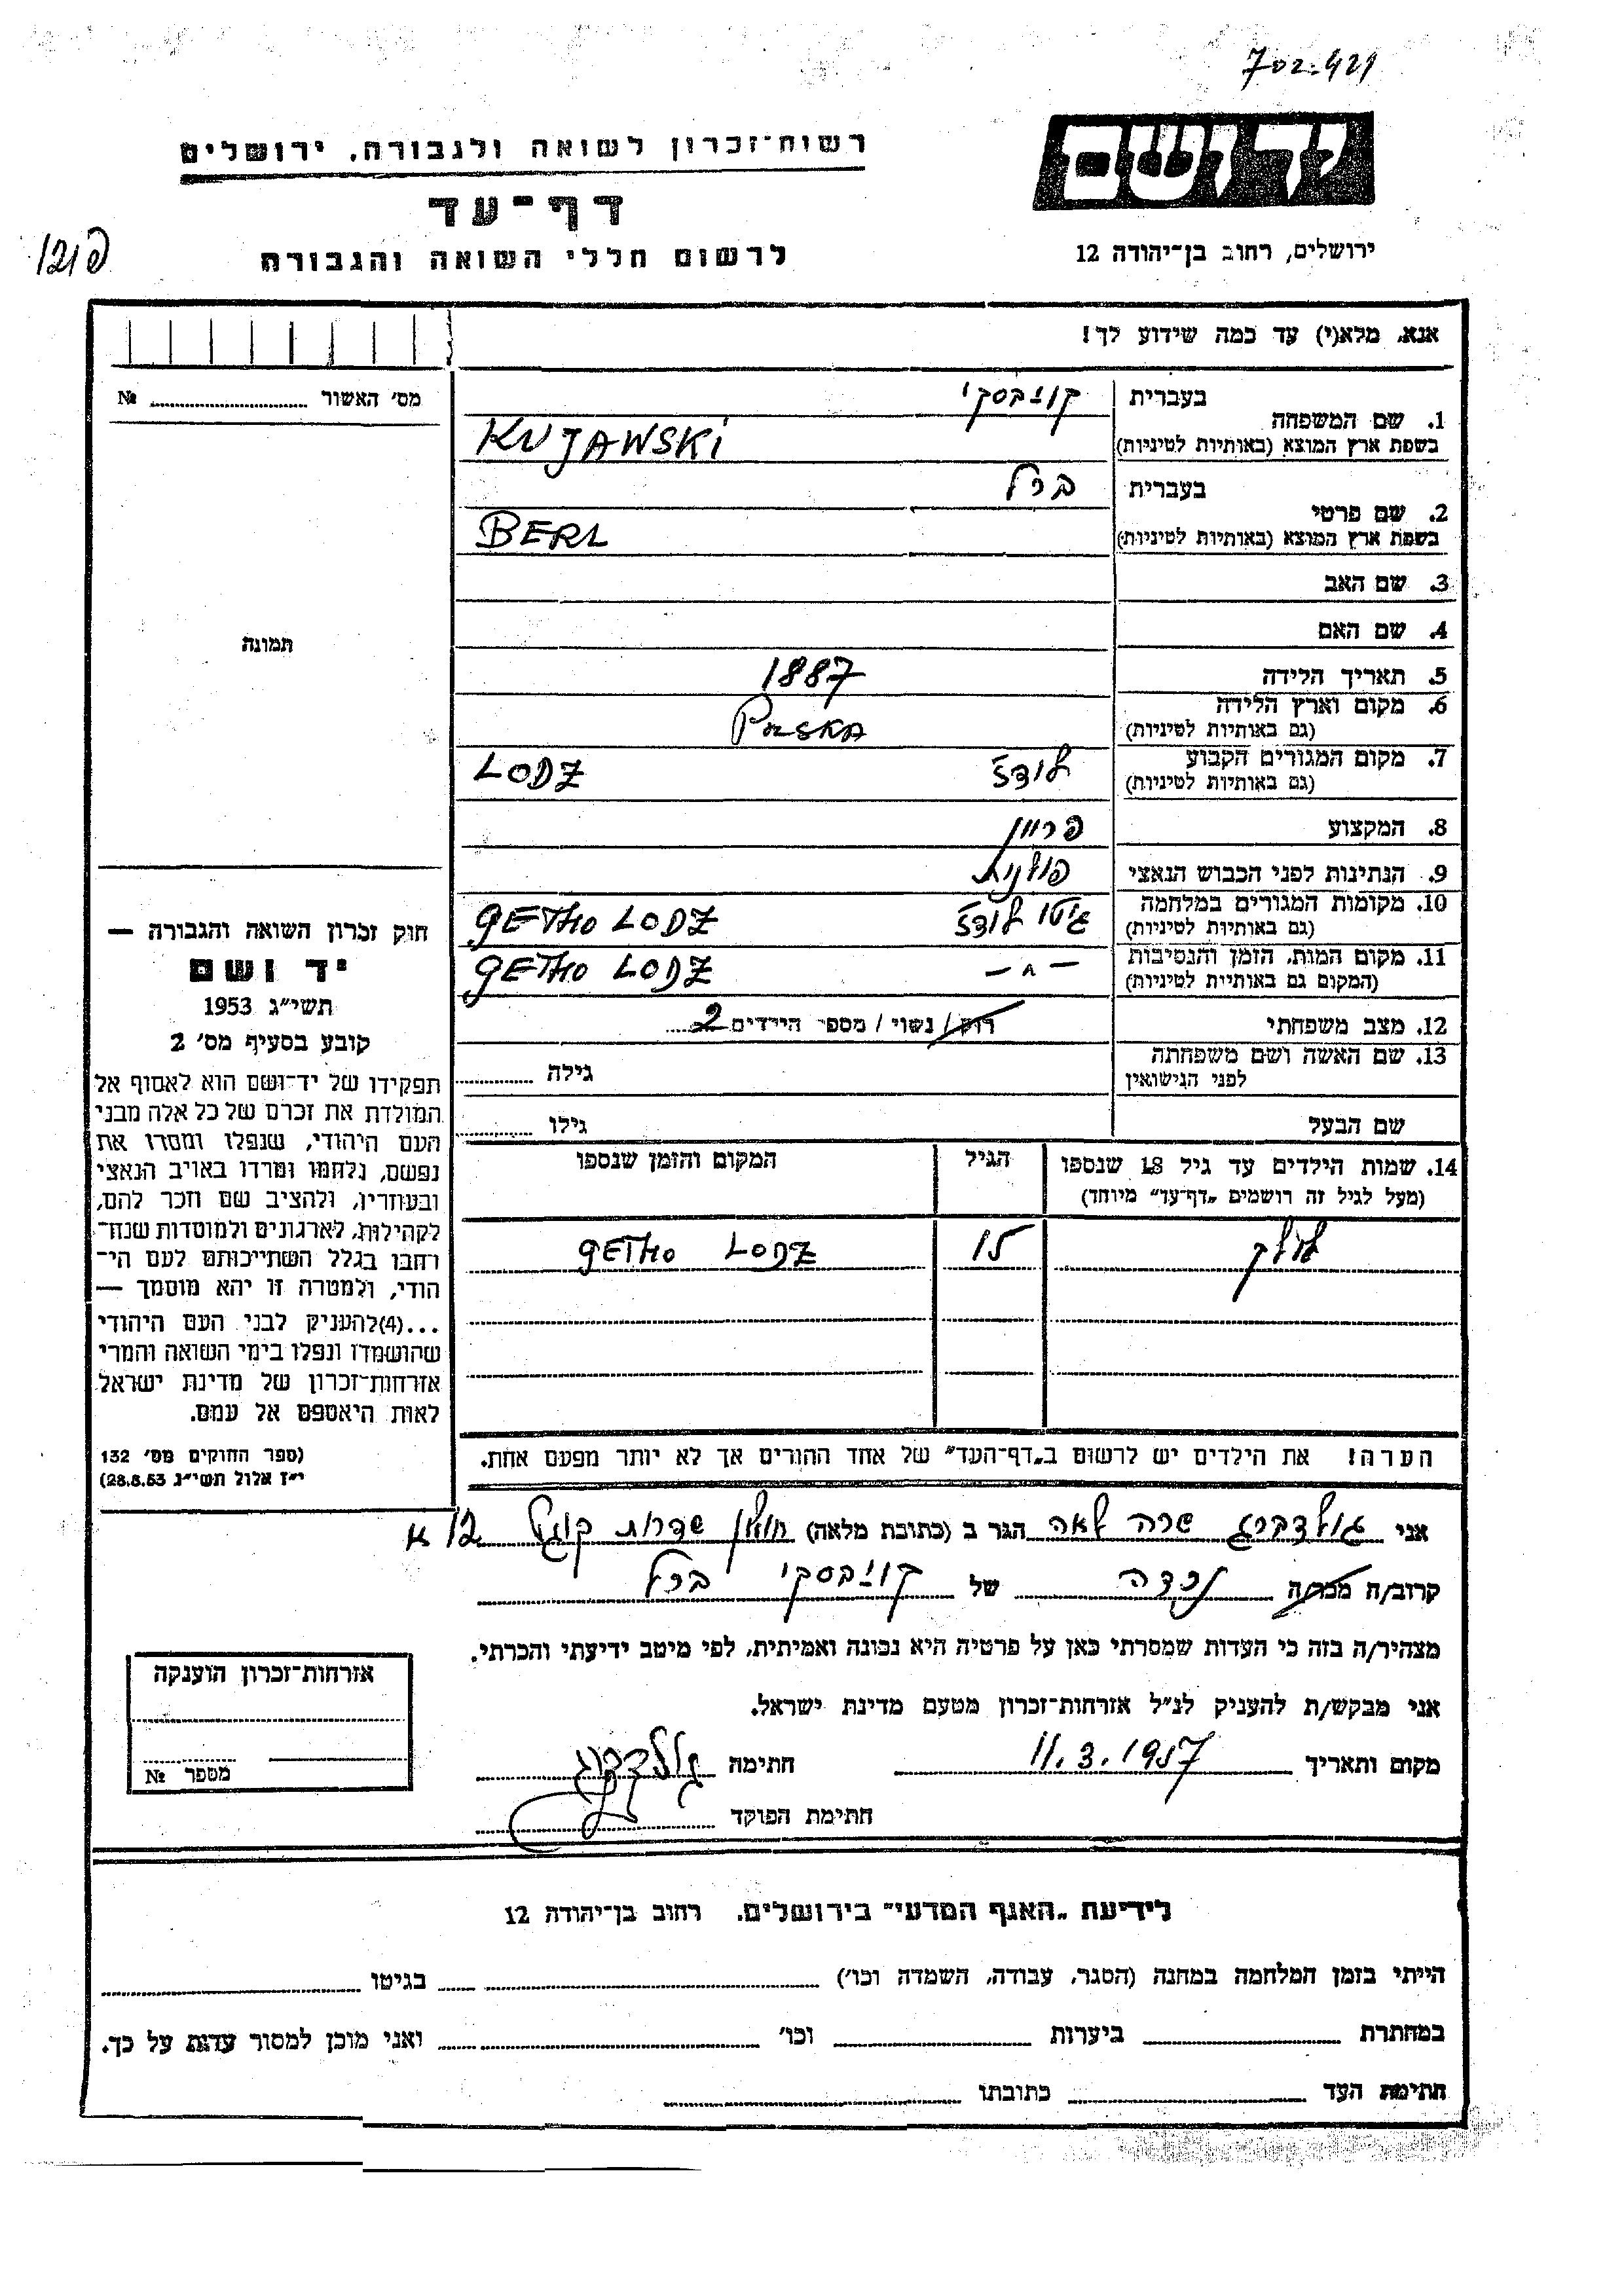 702.421
יד ושם
רשות־זכרון לשואה ולגבורה, ירושלים
דף־עד
לרשום חללי השואה והגבורה
ירושלים, רחוב בן־יהודה 12
אנא, מלא(י) עד כמה שידוע לך!
מס' האשור № 
בעברית קויבסקי
1. שם המשפחה
בשפת ארץ המוצא (באותיות לטיניות) KUJAWSKI
בעברית ברל
2. שם פרטי
בשפת ארץ המוצא (באותיות לטיניות) BERL
3. שם האב
4. שם האם
תמונה
5. תאריך הלידה 1887
6. מקום וארץ הלידה
(גם באותיות לטיניות) POLSKA
7. מקום המגורים הקבוע לודז LODZ
(גם באותיות לטיניות)
8. המקצוע
9. הנתינות לפני הכבוש הנאצי פולנית
10. מקומות המגורים במלחמה גיטו לודז GETHO LODZ
(גם באותיות לטיניות)
11. מקום המות, הזמן והנסיבות — " — GETHO LODZ
(המקום גם באותיות לטיניות)
12. מצב משפחתי רווק / נשוי / מספר הילדים 2
13. שם האשה ושם משפחתה
לפני הנישואין גילה
שם הבעל גילו
14. שמות הילדים עד גיל 18 שנספו הגיל המקום והזמן שנספו
(מעל לגיל זה רושמים „דף־עד" מיוחד)
15 GETHO LODZ
הערה! את הילדים יש לרשום ב„דף־העד" של אחד ההורים אך לא יותר מפעם אחת.
חוק זכרון השואה והגבורה —
יד ושם
תשי"ג 1953
קובע בסעיף מס' 2
תפקידו של יד־ושם הוא לאסוף אל
המולדת את זכרם של כל אלה מבני
העם היהודי, שנפלו ומסרו את
נפשם, נלחמו ומרדו באויב הנאצי
ובעוזריו, ולהציב שם וזכר להם,
לקהילות, לארגונים ולמוסדות שנח־
רחבו בגלל השתייכותם לעם הי־
הודי, ולמטרה זו יהא מוסמך —
...(4)להעניק לבני העם היהודי
שהושמדו ונפלו בימי השואה והמרי
אזרחות־זכרון של מדינת ישראל
לאות היאספם אל עמם.
(ספר החוקים מס' 132
י"ז אלול תשי"ג 28.8.53)
אני גולדברג שרה לאה הגר ב (כתובת מלאה) חולון שדרות קוגל 12 א
קרוב/ה מכר/ה נכדה של קויבסקי ברל
מצהיר/ה בזה כי העדות שמסרתי כאן על פרטיה היא נכונה ואמיתית, לפי מיטב ידיעתי והכרתי.
אני מבקש/ת להעניק לנ"ל אזרחות־זכרון מטעם מדינת ישראל.
מקום ותאריך 11.3.1957 חתימה גולדברג
חתימת הפוקד
אזרחות־זכרון הוענקה
מספר №
לידיעת „האגף המדעי" בירושלים, רחוב בן־יהודה 12
הייתי בזמן המלחמה במחנה (הסגר, עבודה, השמדה וכו') בגיטו
במחתרת ביערות וכו' ואני מוכן למסור עדות על כך.
חתימת העד כתובתו